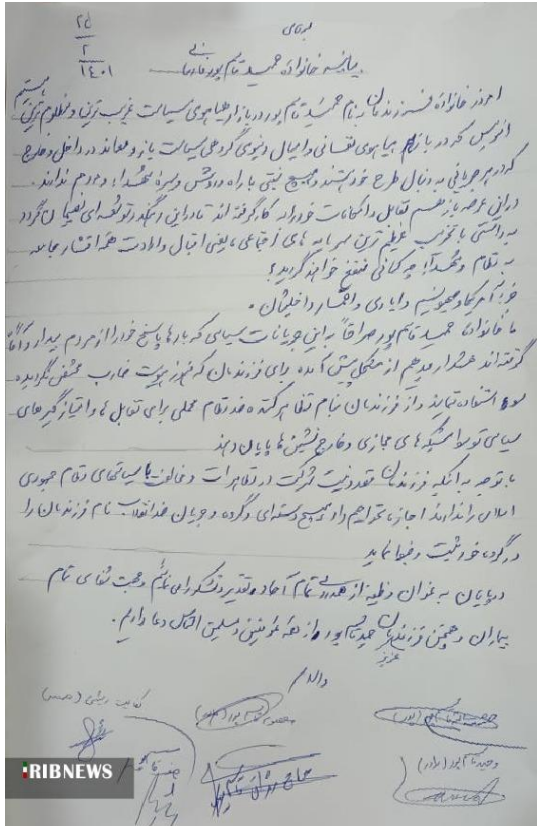 ۲۵
۲
۱۴۰۱
بیانیه خانواده حمید قاسم پور
امروز خانواده فرزندمان بنام حمید قاسم پور در بازار هیاهوی سیاست غریب ترین و مظلوم ترین هستیم
افسوس که در بازار هیاهوی نفسانی و امیال دنیوی گروهی سیاست باز و معاند در داخل و خارج
که در هر جریانی به دنبال طرح خود هستند و هیچ نسبتی با راه و روش و سیره شهدا و مردم ندارند.
در این عرصه باز هم تمام امکانات خود را به کار گرفته اند تا در این
به راستی با تخریب عظیم ترین سرمایه های اجتماعی یعنی اقبال و ارادت همه اقشار جامعه
به نظام و شهدا، چه کسانی منتفع خواهند گردید؟
جز آمریکا و صهیونیسم و ایادی داخلیشان.
ما خانواده حمید قاسم پور صراحتاً به این جریانات سیاسی که بارها پاسخ خود را از مردم بیدار و آگاه
گرفته اند هشدار می دهیم از مشکل پیش آمده برای فرزندمان که هنوز هویت ضارب مشخص نگردیده
سوء استفاده ننمایند و از فرزندمان بنام تظاهر کننده ضد نظام محملی برای تقابل ها و امتیازگیری های
سیاسی توسط شبکه های مجازی و خارج نشین ها پایان دهند
با توجه به آنکه فرزندمان قصد و نیت شرکت در تظاهرات و مخالفت با سیاستهای نظام جمهوری
اسلامی را نداشته اجازه نخواهیم داد هیچ دسته ای و گروه و جریان ضد انقلاب نام فرزندمان را
در گروه خود ثبت و ضبط نماید
در پایان به عنوان وظیفه از همدردی تمام آحاد تقدیر و تشکر داریم و جهت شفای تمام
بیماران و همچنین فرزند عزیزمان حمید قاسم پور از همه مومنین و مسلمین التماس دعا داریم.
والسلام
وحید قاسم پور (برادر)
IRIBNEWS